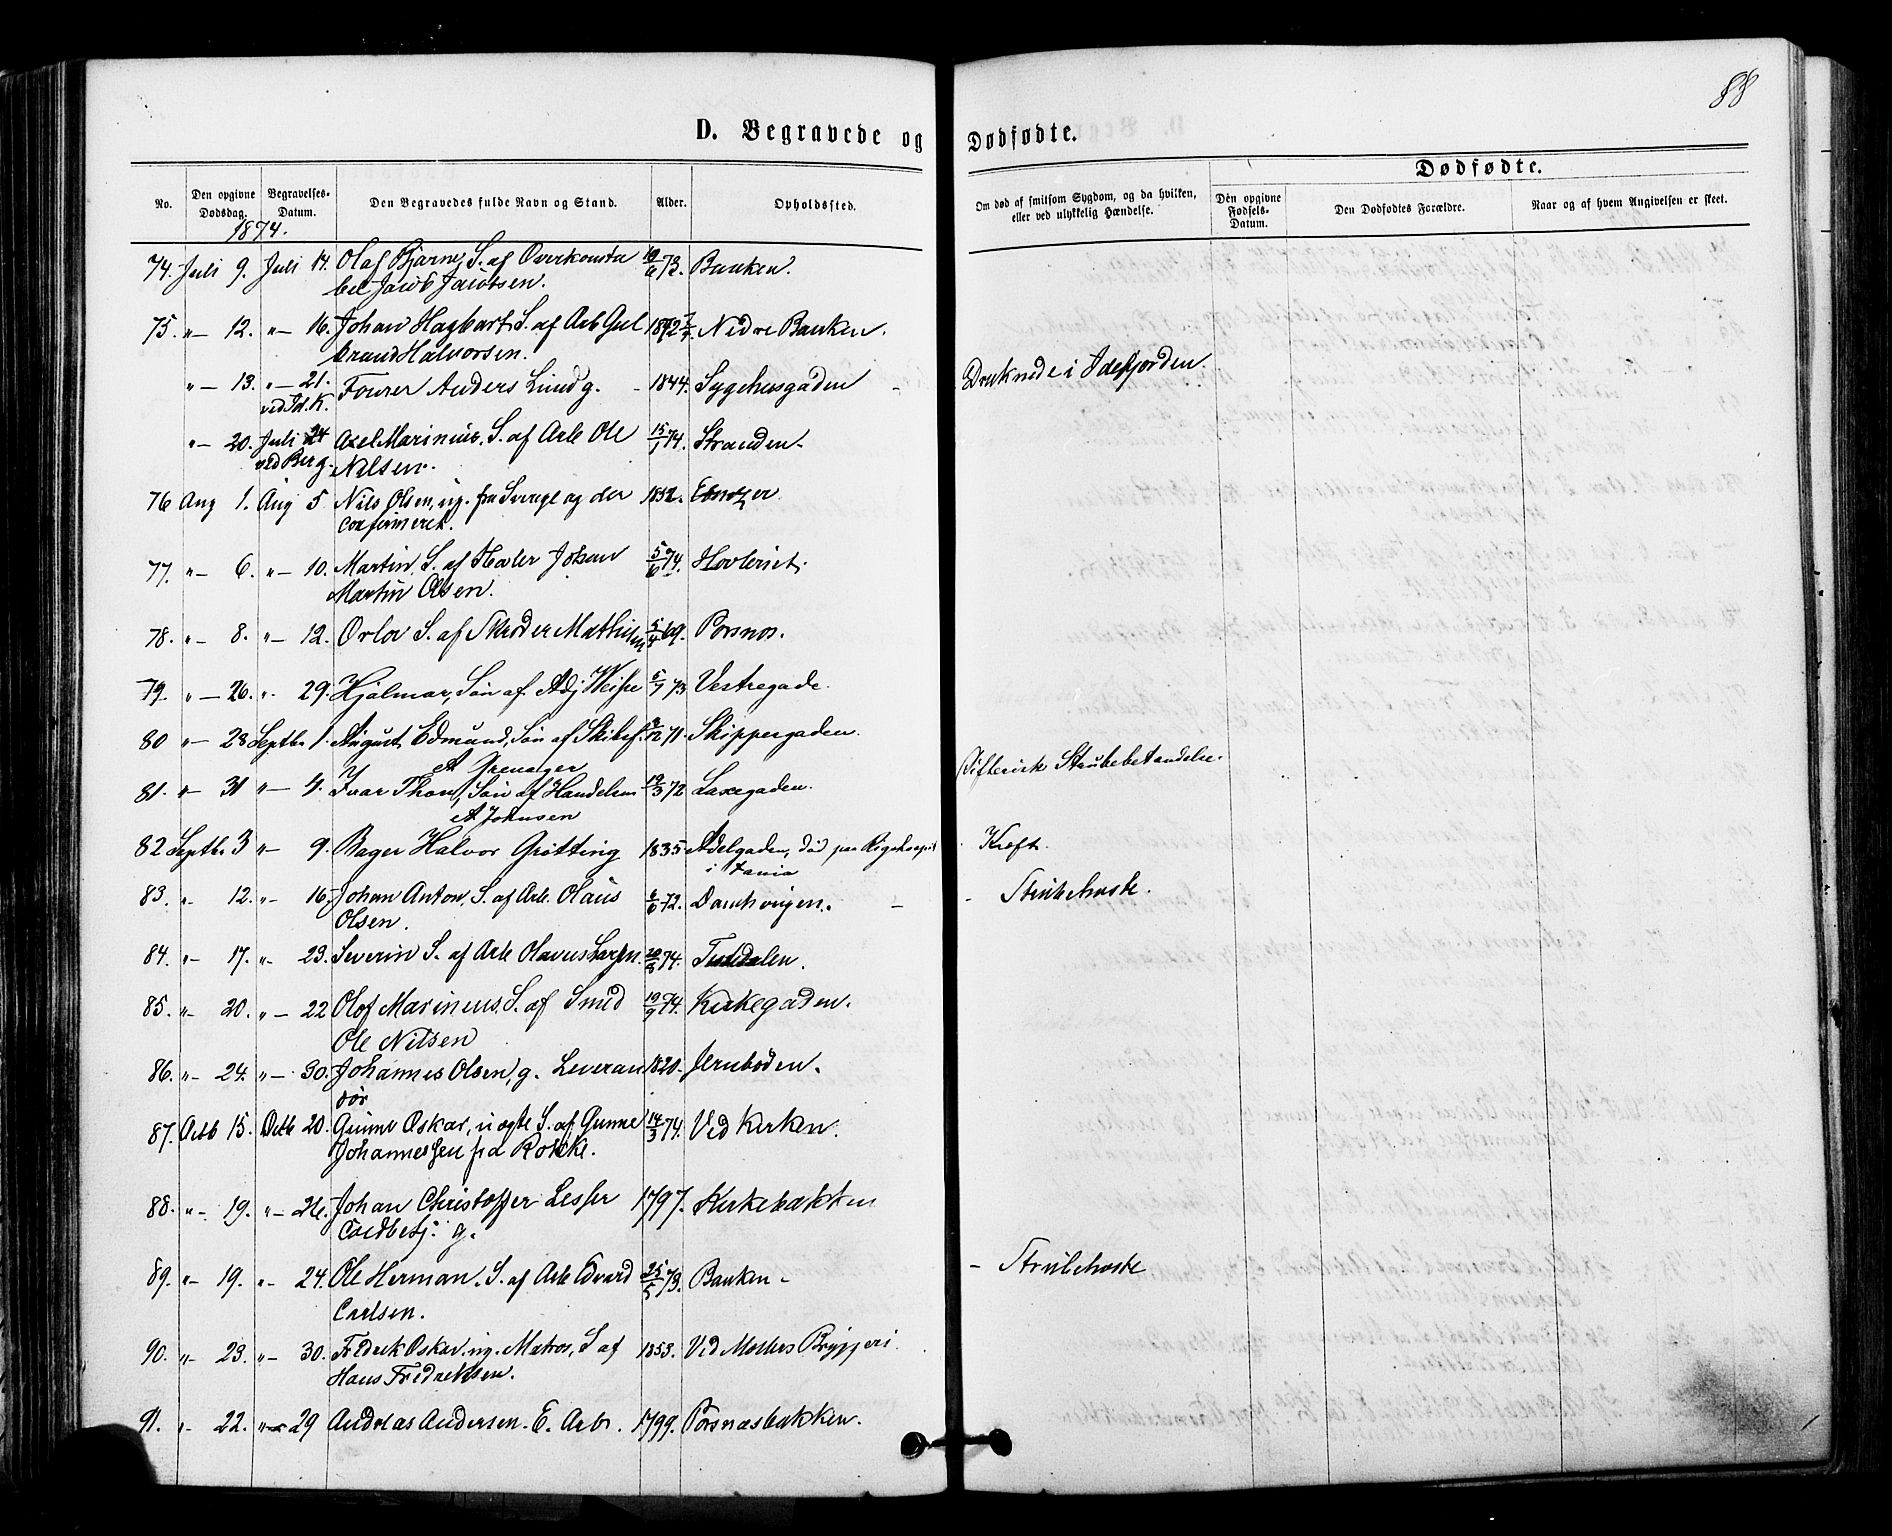 88
D. Begravede og Dødfødte.
No.
Den opgivne Dødsdag.
Begravelses-Datum.
Den Begravedes fulde Navn og Stand.
Alder.
Opholdssted.
Om død af smitsom Sygdom, og da hvilken, eller ved ulykkelig Hændelse.
Dødfødte.
Den opgivne Fødsels-Datum.
Den Dødfødtes Forældre.
Naar og af hvem Angivelsen er skeet.
1874.
74. Juli 9. Juli 14. Olaf Bjarne, S. af Overkonsta 19/6 73. Banken.
bel Jacob Jacobsen.
75. " — 12. " — 16. Johan Hagbart S. af Arb Gul 1872 Nedre Banken.
brand Halvorsen.
" — 13. " — 21. Fourer Anders Lund g. 1844. Sygehusgaden Druknede i Idefjorden.
ved Id. K.
" — 20. Juli 24 Axel Marinius, S. af Arb Ole 15/1 74. Stranden.
ved Berg. Nilsen.
76 Aug 1. Aug 5 Nils Olsen, ug. fra Sverige og der 1852. Ebnezer
confirmeret.
77. " — 6. " — 10. Martin, S. af Johan 5/6 74. Hovleriet.
Martin Olsen.
78. " — 8. " — 12. Orlov S. af Skræder Mathisen 5/4 69. Porsnes.
79. " — 26. " 29. Hjalmar, Søn af Adj Weisse 5/7 73 Vestregade.
80 " — 28 Septbr 1. August Edmund, Søn af Skibsf. 71. Skippergaden.
A Grenager
81. " 31 " — 4. Ivar Thom, Søn af Handelsm 19/3 72 Laxegaden. Difterisk Strubebetændelse.
A Johnsen
82 Septbr 3 " — 9. Bager Halvor Grötting 1835 Adelgaden, död paa Rigshospit Kræft.
i Xania
83. " 12. " — 16. Johan Anton, S. af Arb. Olaus 6/6 72. Damhvingen. - Strubehoste.
Olsen.
84. " — 17. " — 23. Severin S. af Arb Olavus Larsen. 74. Tistedalen.
85. " 20. " — 22 Olof Marinius, S. af Smed 19/9 74. Kirkegaden.
Ole Nilsen
86. " — 24. " — 30. Johannes Olsen, g. Leveran 1820. Jernboden.
dør
87. Octb 15. Octb 20. Gunne Oskar, uægte S. af Gunne 14/3 74. Ved Kirken.
Johannessen fra Rokke.
88. " — 19. " — 26. Johan Christoffer Lesser 1797. Kirkebakken
g.
89. " — 19. " — 24. Ole Herman, S. af Arb Edvard 25/5 73. Banken - - Strubehoste
Carlsen.
90. " — 23. " — 30. Fredrik Oskar, ug. Matros, S af 1853. Ved Møllers Bryggeri.
Hans Fredriksen.
91. " 22. " 29 Andreas Andersen. E. Arbr. 1799. Porsnæsbakken.